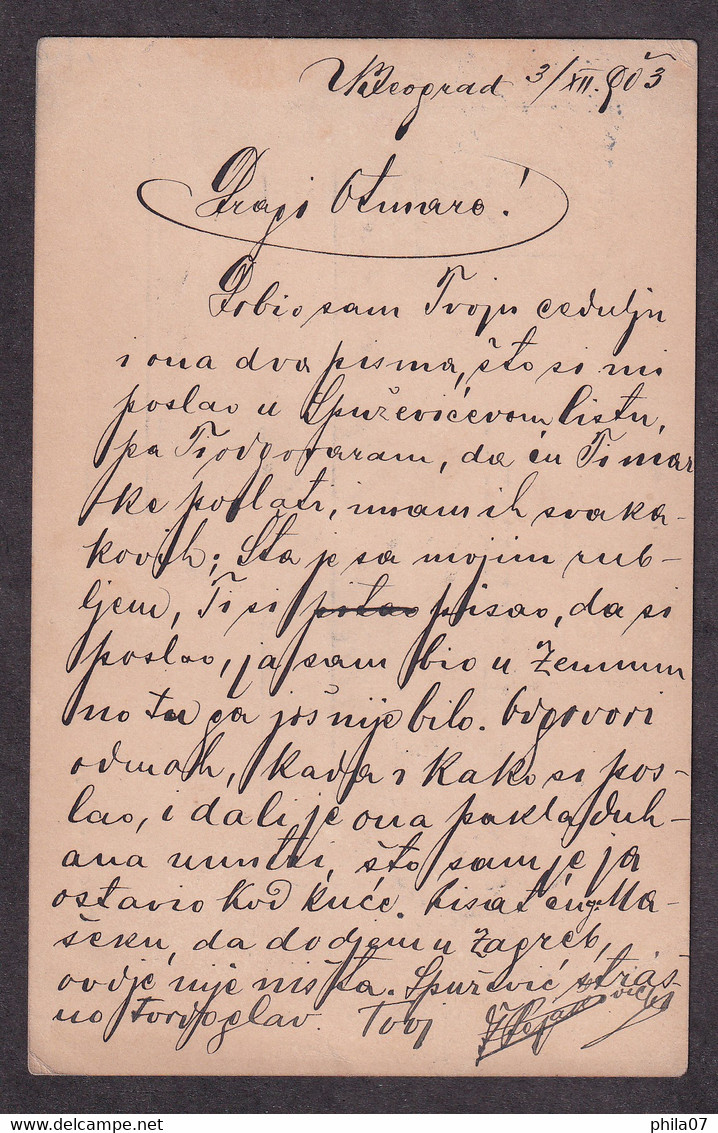 Beograd 3/XII. 903
Dragi Otmaro!
Dobio sam Tvoju cedulju
i ona dva pisma, što si mi
poslao u Spuževićevom listu,
pa Ti odgovaram, da ću Ti mar
ke poslati, imam ih svaka-
kovih; Šta je sa mojim rub-
ljem, Ti si pisao, da si
poslao, ja sam bio u Zemunu
no tu ga još nije bilo. Odgovori
odmah, kada i kako si pos-
lao, i dali je ona pakla duh-
ana unutri, što sam je ja
ostavio kod kuće. Pisat ću g. Ma-
šeku, da dodjem u Zagreb,
ovdje nije ništa. Spužević straš-
no tvrdoglav. Tvoj
phila07